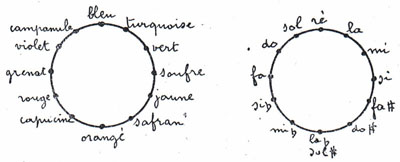 bleu
turquoise
vert
soufre
jaune
safran
orangé
capucine
rouge
grenat
violet
campanule
ré
la
mi
si
fa#
do#
la♭
sol#
mi♭
si♭
fa
do
sol